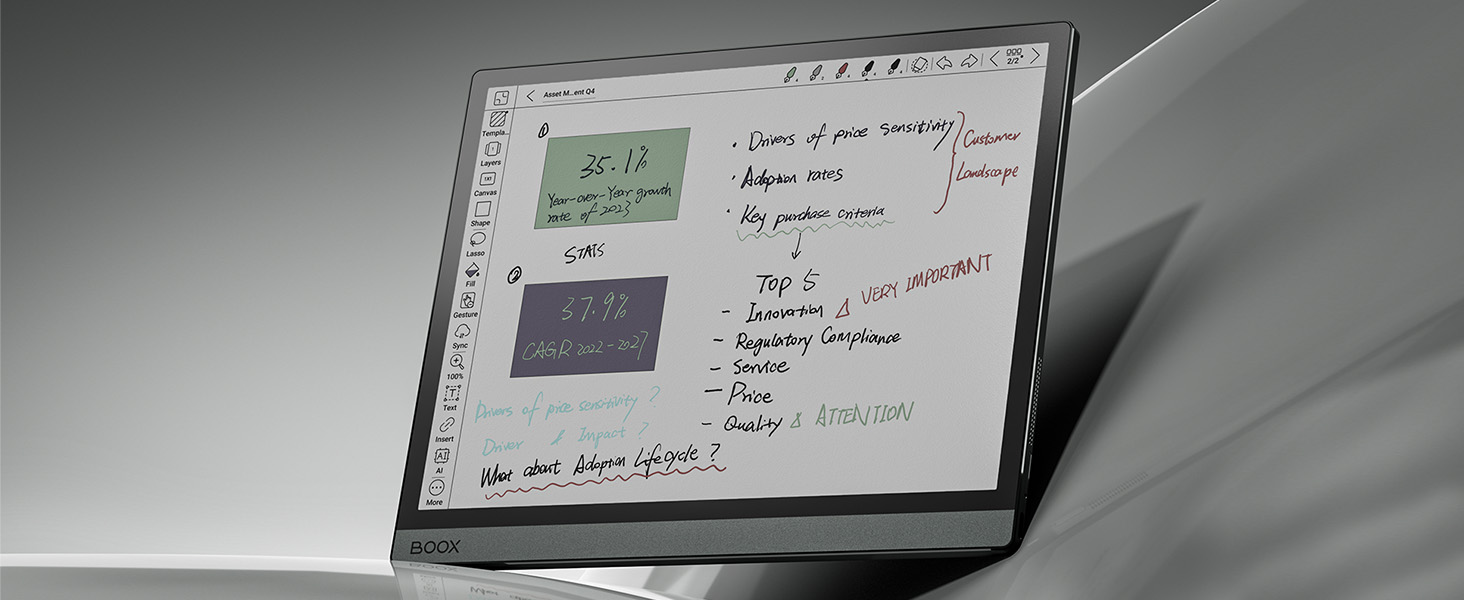 Asset M...ent Q4
2/2
Templa...
Layers
Canvas
Shape
Lasso
Fill
Gesture
Sync
100%
Text
Insert
AI
More
①
35.1%
Year-over-Year growth
rate of 2023
STATS
②
37.9%
CAGR 2022-2027
Drivers of price sensitivity ?
Driver & Impact ?
What about Adoption Lifecycle ?
• Drivers of price sensitivity
• Adoption rates
• Key purchase criteria
Customer
Landscape
Top 5
- Innovation
VERY IMPORTANT
- Regulatory Compliance
- Service
- Price
- Quality
ATTENTION
BOOX